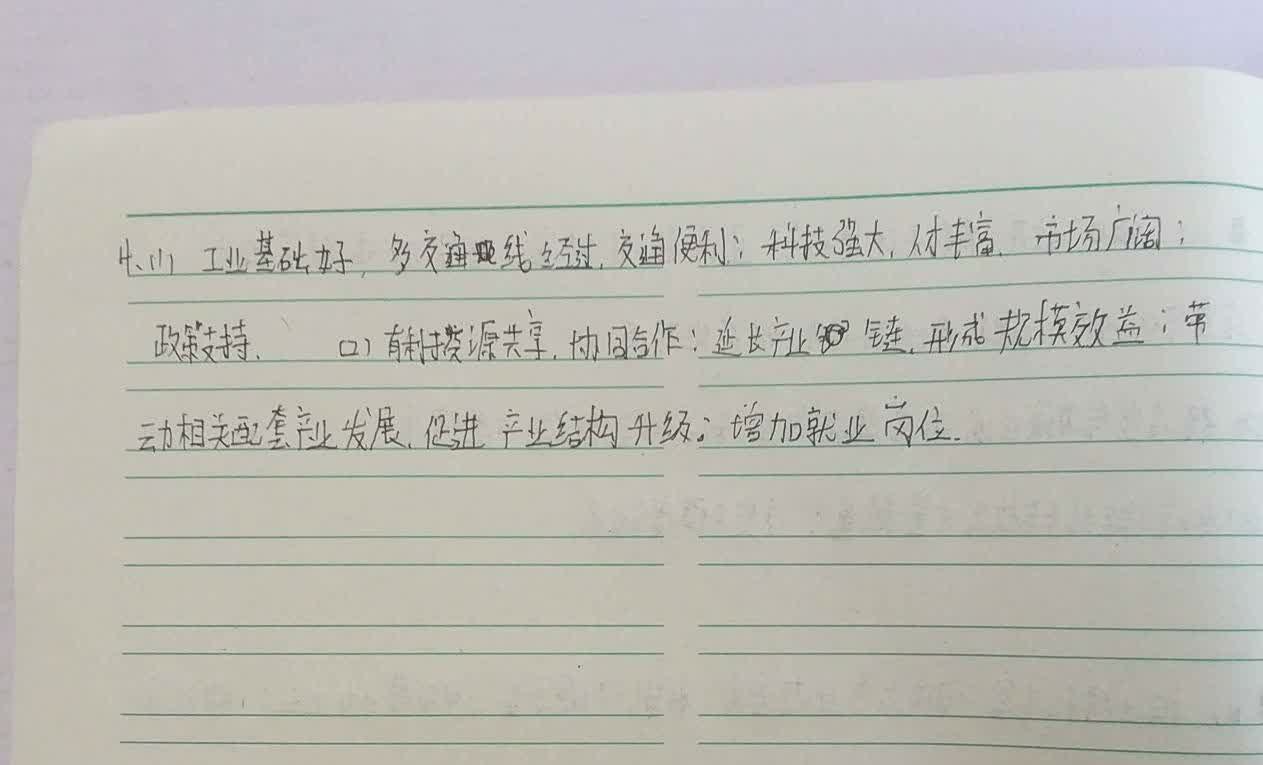 4、(1) 工业基础好，多交通线经过，交通便利；科技强大，人才丰富，市场广阔；
政策支持。 (2) 有利于资源共享，协同合作；延长产业链，形成规模效益；带
动相关配套产业发展，促进产业结构升级；增加就业岗位。